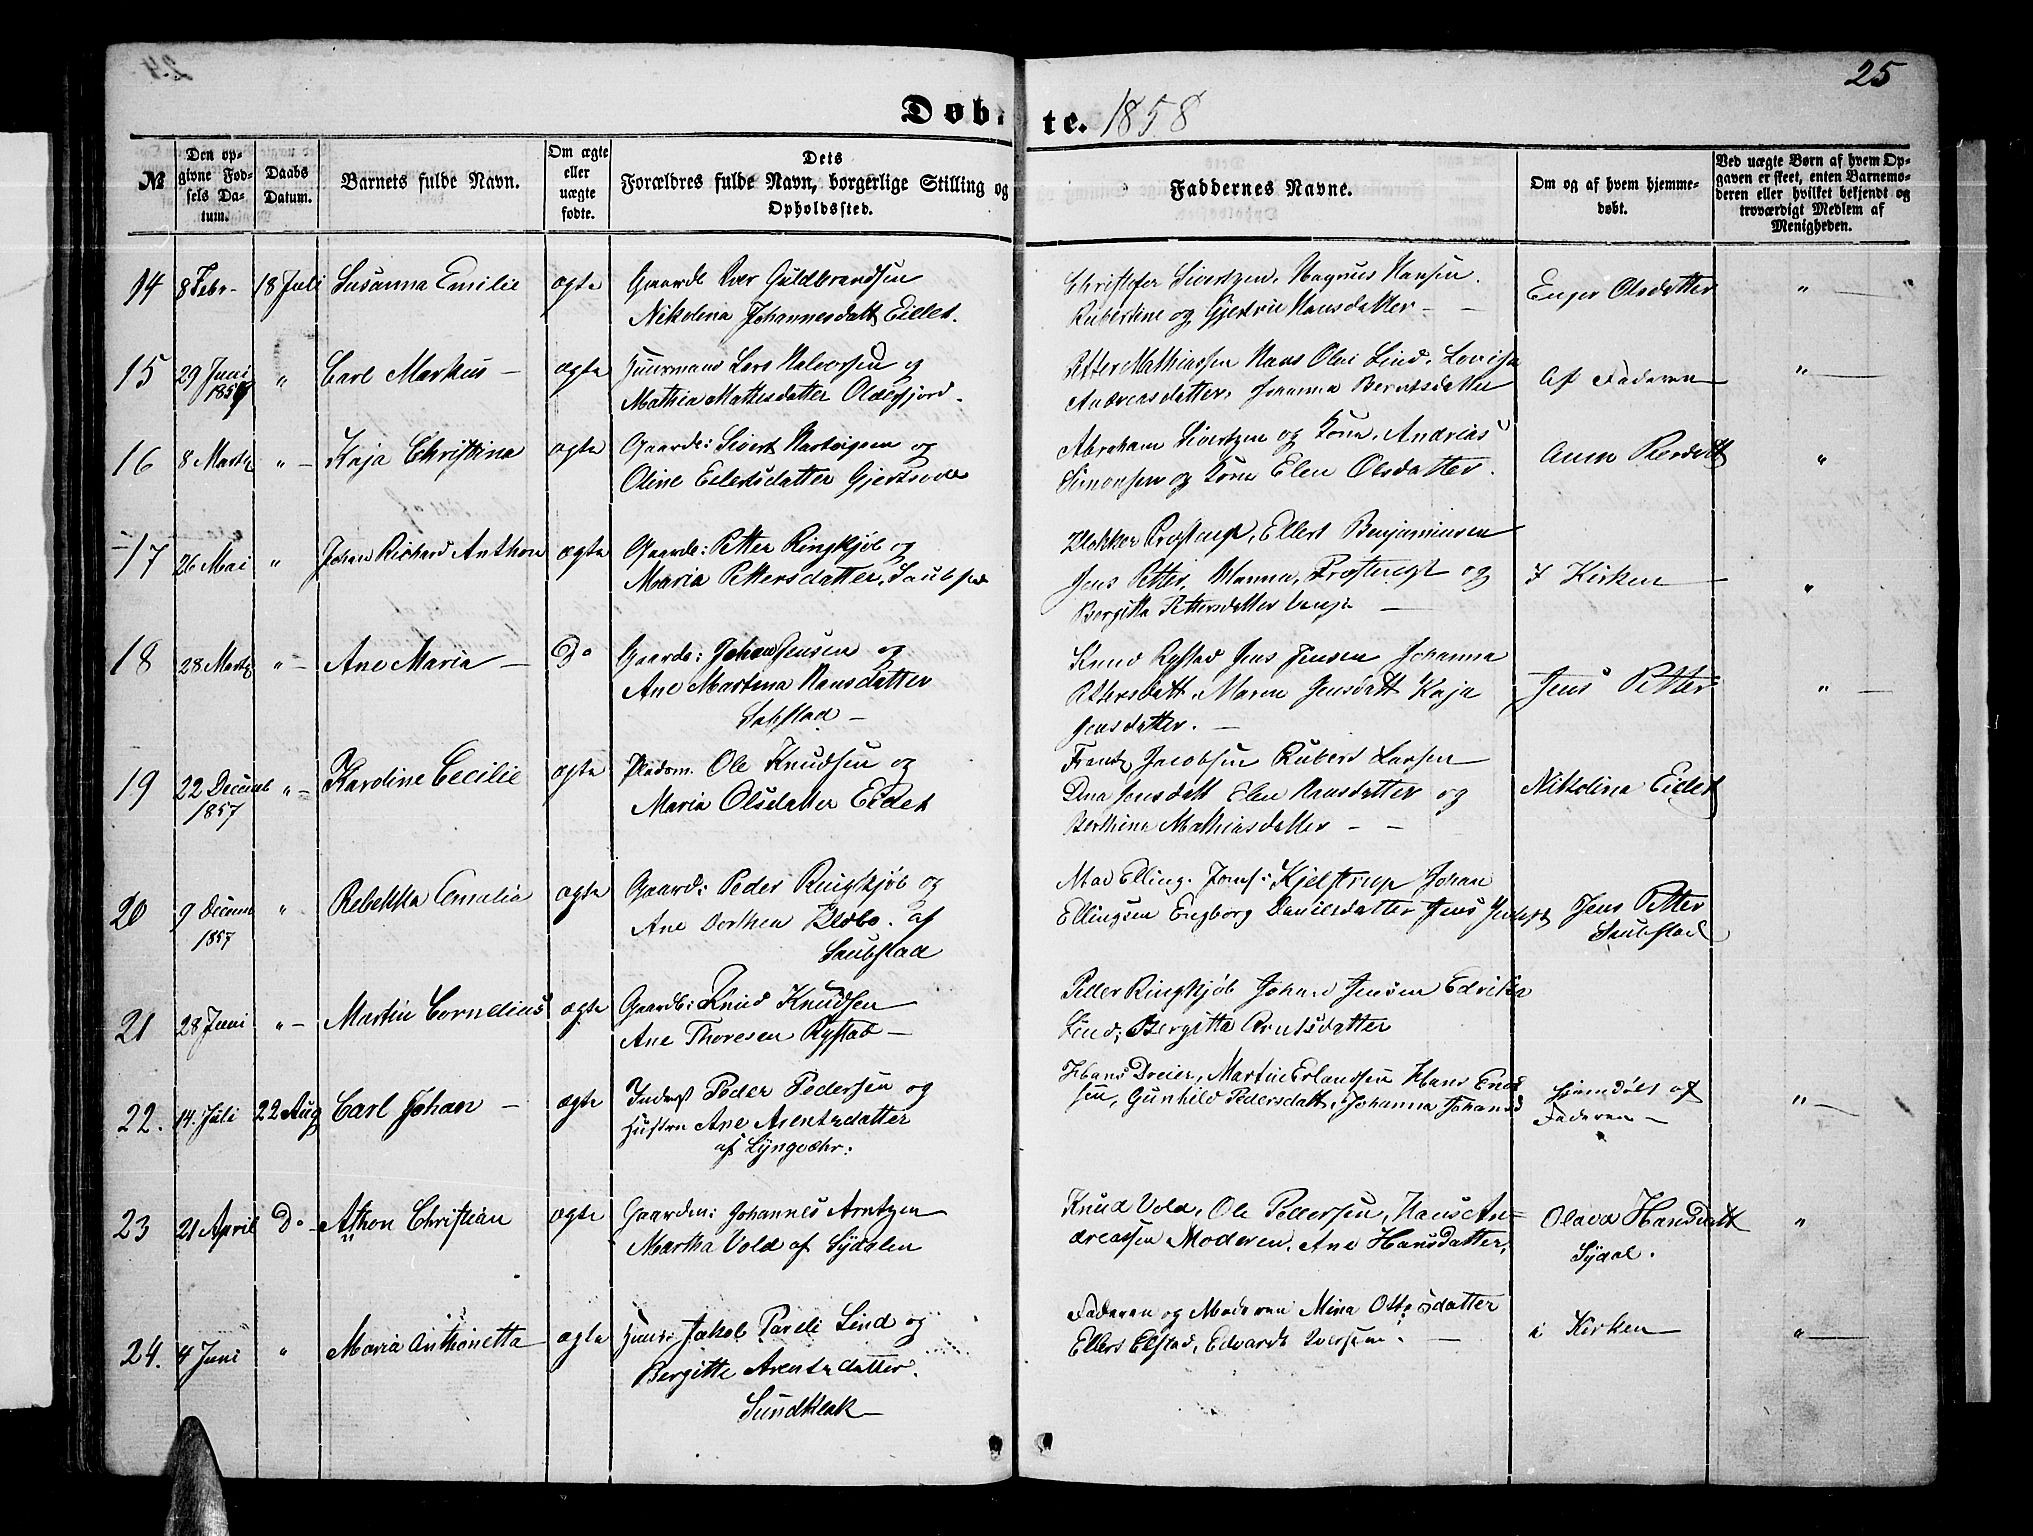 25
Døbte. 1858
№
Den opgivne Fødsels Datum.
Daabs Datum.
Barnets fulde Navn.
Om ægte eller uægte fødte.
Dets Forældres fulde Navn, borgerlige Stilling og Opholdssted.
Faddernes Navne.
Om og af hvem hjemmedøbt.
Ved uægte Børn af hvem Opgaven er skeet, enten Barnemoderen eller hvilket bekjendt og troværdigt Medlem af Menigheden.
14 8 Febr. 18 Juli Susanna Emilie ægte Gaardb Iver Guldbrandsen
Nikolina Johannesdatt Eidet.
Christofer Sivertzen, Magnus Hansen.
Rubertine og Gjertrú Hansdatter
Enger Olsdatter "
15 29 Juni 1857 " Carl Markus ægte Huusmand Lars Halvorsen og
Mathia Mathisdatter Oldersfjord.
Petter Mathiassen Hans Olai Lind, Lovisa
Andreasdatter, Johanna Berntsdatter
Af Faderen "
16 8 Marty " Kaja Christina ægte Gaardb: Sivert Hartvigsen og
Oline Eilertsdatter Gjertsvde
Abraham Sivertzen og Kone, Andrias
Simonsen og Kone Elen Olsdatter.
Anna Peersdtt "
17 26 Mai " Johan Richard Anthon ægte Gaardb: Petter Ringkjøb og
Maria Pettersdatter, Saubstad
Klokker Prøsterup, Ellert Benjaminsen
Jens Petter, Hanna, Prøsterup og
Bergitta Pettersdatter
I Kirken "
18 28 Marty " Ane Maria Do Gaardb: Johan Jensen og
Ane Martina Hansdatter
Saupstad
Knud Rystad Jens Jensen Johanna
Pettersdatt, Maren Jensdatt Kaja
Jensdatter.
Jens Petter "
19 22 Decemb 1857 " Karoline Cecilie ægte Pladsm. Ole Knudsen og
Maria Olsdatter Eidet
Frantz Jacobsen Rubert Larsen
Dina Jensdatt Elen Hansdatter og
Berthine Mathiasdatter
Nikkolina Eidet
20 9 Decem 1857 " Rebekka Amalia ægte Gaardb: Peder Ringkjøb og
Ane Dorthea Klæbo. af
Saubstad
Mad Elling. Jomf: Kjelstrup Johan
Ellingsen Engborg Danielsdatter Jens
Jens Petter
Saubstad
21 28 Juni " Martin Cornelius ægte Gaardb: Knud Knudsen
Ane Thoresen Rystad
Petter Ringkjøb Johan Jensen Edrikka
Lind, Bergitta Arntsdatter
22. 14. Juli 22 Aug Carl Johan ægte Inderst Peder Pedersen og
Hustru Ane Arentzdatter
af Lyngvær.
Hans Dreier, Martin Erlandsen Hans Enok
sen, Gunhild Pedersdatt, Johanna Johansd
Hjemdøbt af
Faderen "
23 21 April Do Athon Christian ægte Gaardm: Johannes Arntzen
Martha Vold af Sydalen
Knud Vold, Ole Pedersen, Hans An-
dreassen Moderen, Ane Hansdatter,
Olava Hansdatt
Sydal. "
24. 4 Juni " Maria Anthonetta ægte Huusm: Jakob Pareli Lind og
Bergitte Arentzdatter.
Sundklak
Faderen og Moderen Mina Ottosdatter
Ellert Elstad, Edvard Iversen.
i Kirken "